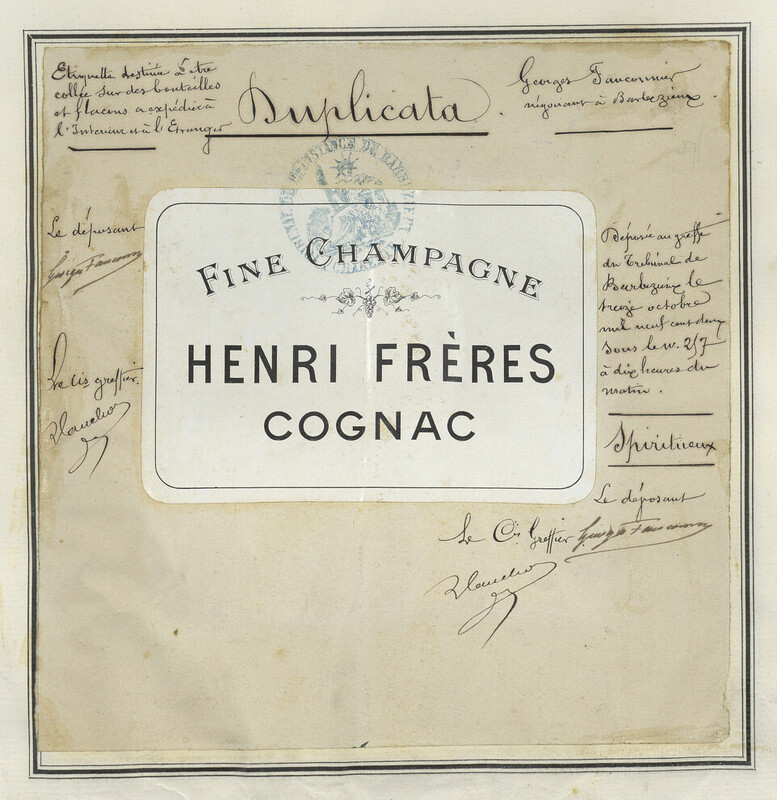 Etiquette destinée à être
collée sur des bouteilles
et flacons à expédier à
l'Intérieur et à l'Etranger
Duplicata.
Georges Fauconnier
négociant à Barbezieux.
Le déposant
Georges Fauconnier
Le Cis greffier.
FINE CHAMPAGNE
HENRI FRÈRES
COGNAC
Déposée au greffe
du Tribunal de
Barbezieux le
treize octobre
mil neuf cent deux
sous le no. 257
à dix heures du
matin.
Spiritueux
Le déposant
Le Cis Greffier
Georges Fauconnier